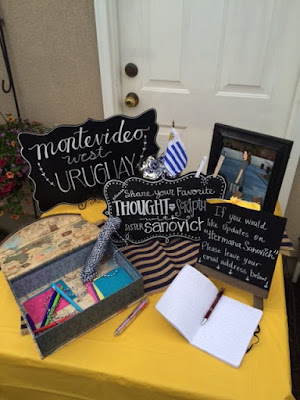 montevideo
west
URUGUAY
Share your Favorite
THOUGHT or Scripture
with
SISTER Sanovich
If you would
like Updates on
"Hermana Sanovich"
Please leave your
email address below